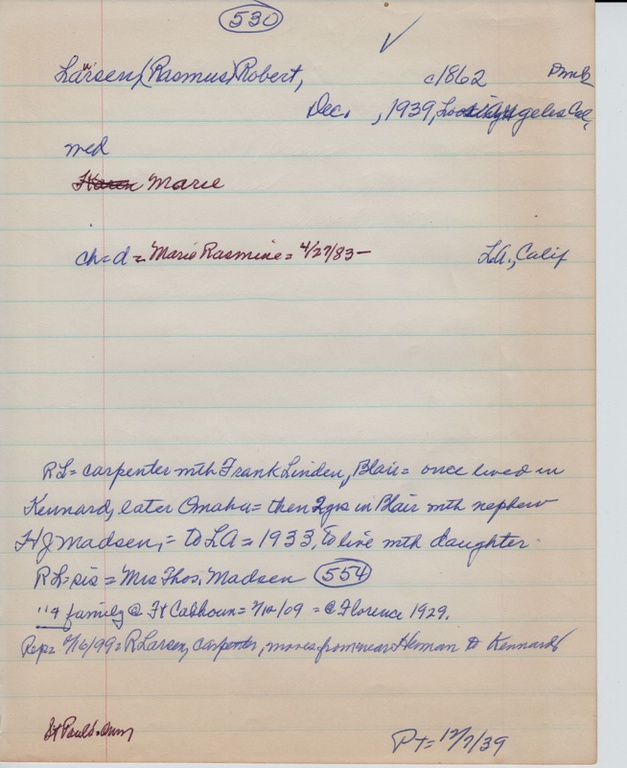 530
Larsen, (Rasmus) Robert, c1862 Dmk
Dec. , 1939, Los Angeles Cal,
med
Karen Marie
ch = d = Marie Rasmine = 4/27/83 – L.A., Calif
RL = carpenter with Frank Linden, Blair = once lived in
Kennard, later Omaha = then 2 yrs in Blair with nephew
H J Madsen, = to LA = 1933, to live with daughter
RL = sis = Mrs Thos. Madsen 554
" & family @ Ft Calhoun = /09 = @ Florence 1929.
Rep = /16/99 = R Larsen, carpenter, moves from near Herman to Kennard
St Paul's
PT = 12/7/39